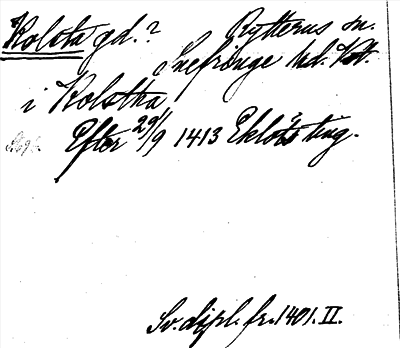 Kolsta gd.? Rytterns sn.
Snefringe hd. Vstm.
i Kolstha
Efter 29/9 1413 Eklösa ting.
Sv. dipl. fr. 1401. II.